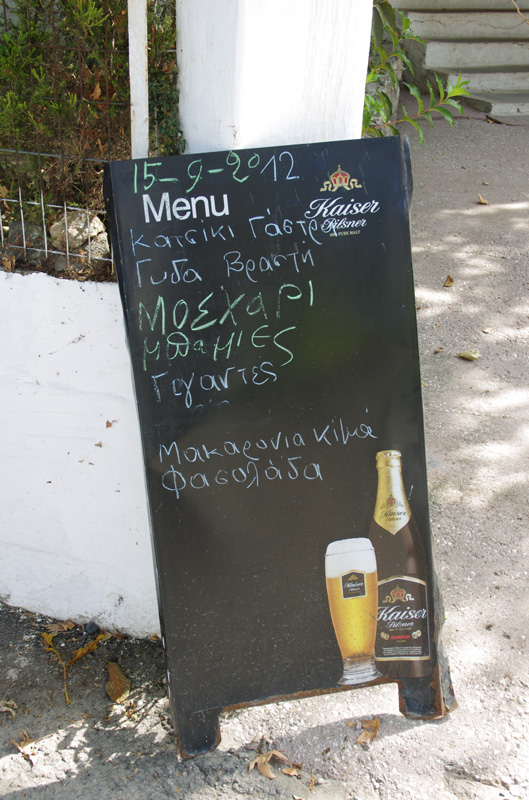 15-9-2012
Menu
Kaiser
Pilsner
100% PURE MALT
Κατσικι Γάστρα
Γυδα Βραστή
ΜΟΣΧΑΡΙ
ΜΠαΜΙΕΣ
Γιγαντες
Μακαρονια κιμά
Φασολάδα
Kaiser
Pilsner
Kaiser
Kaiser
Pilsner